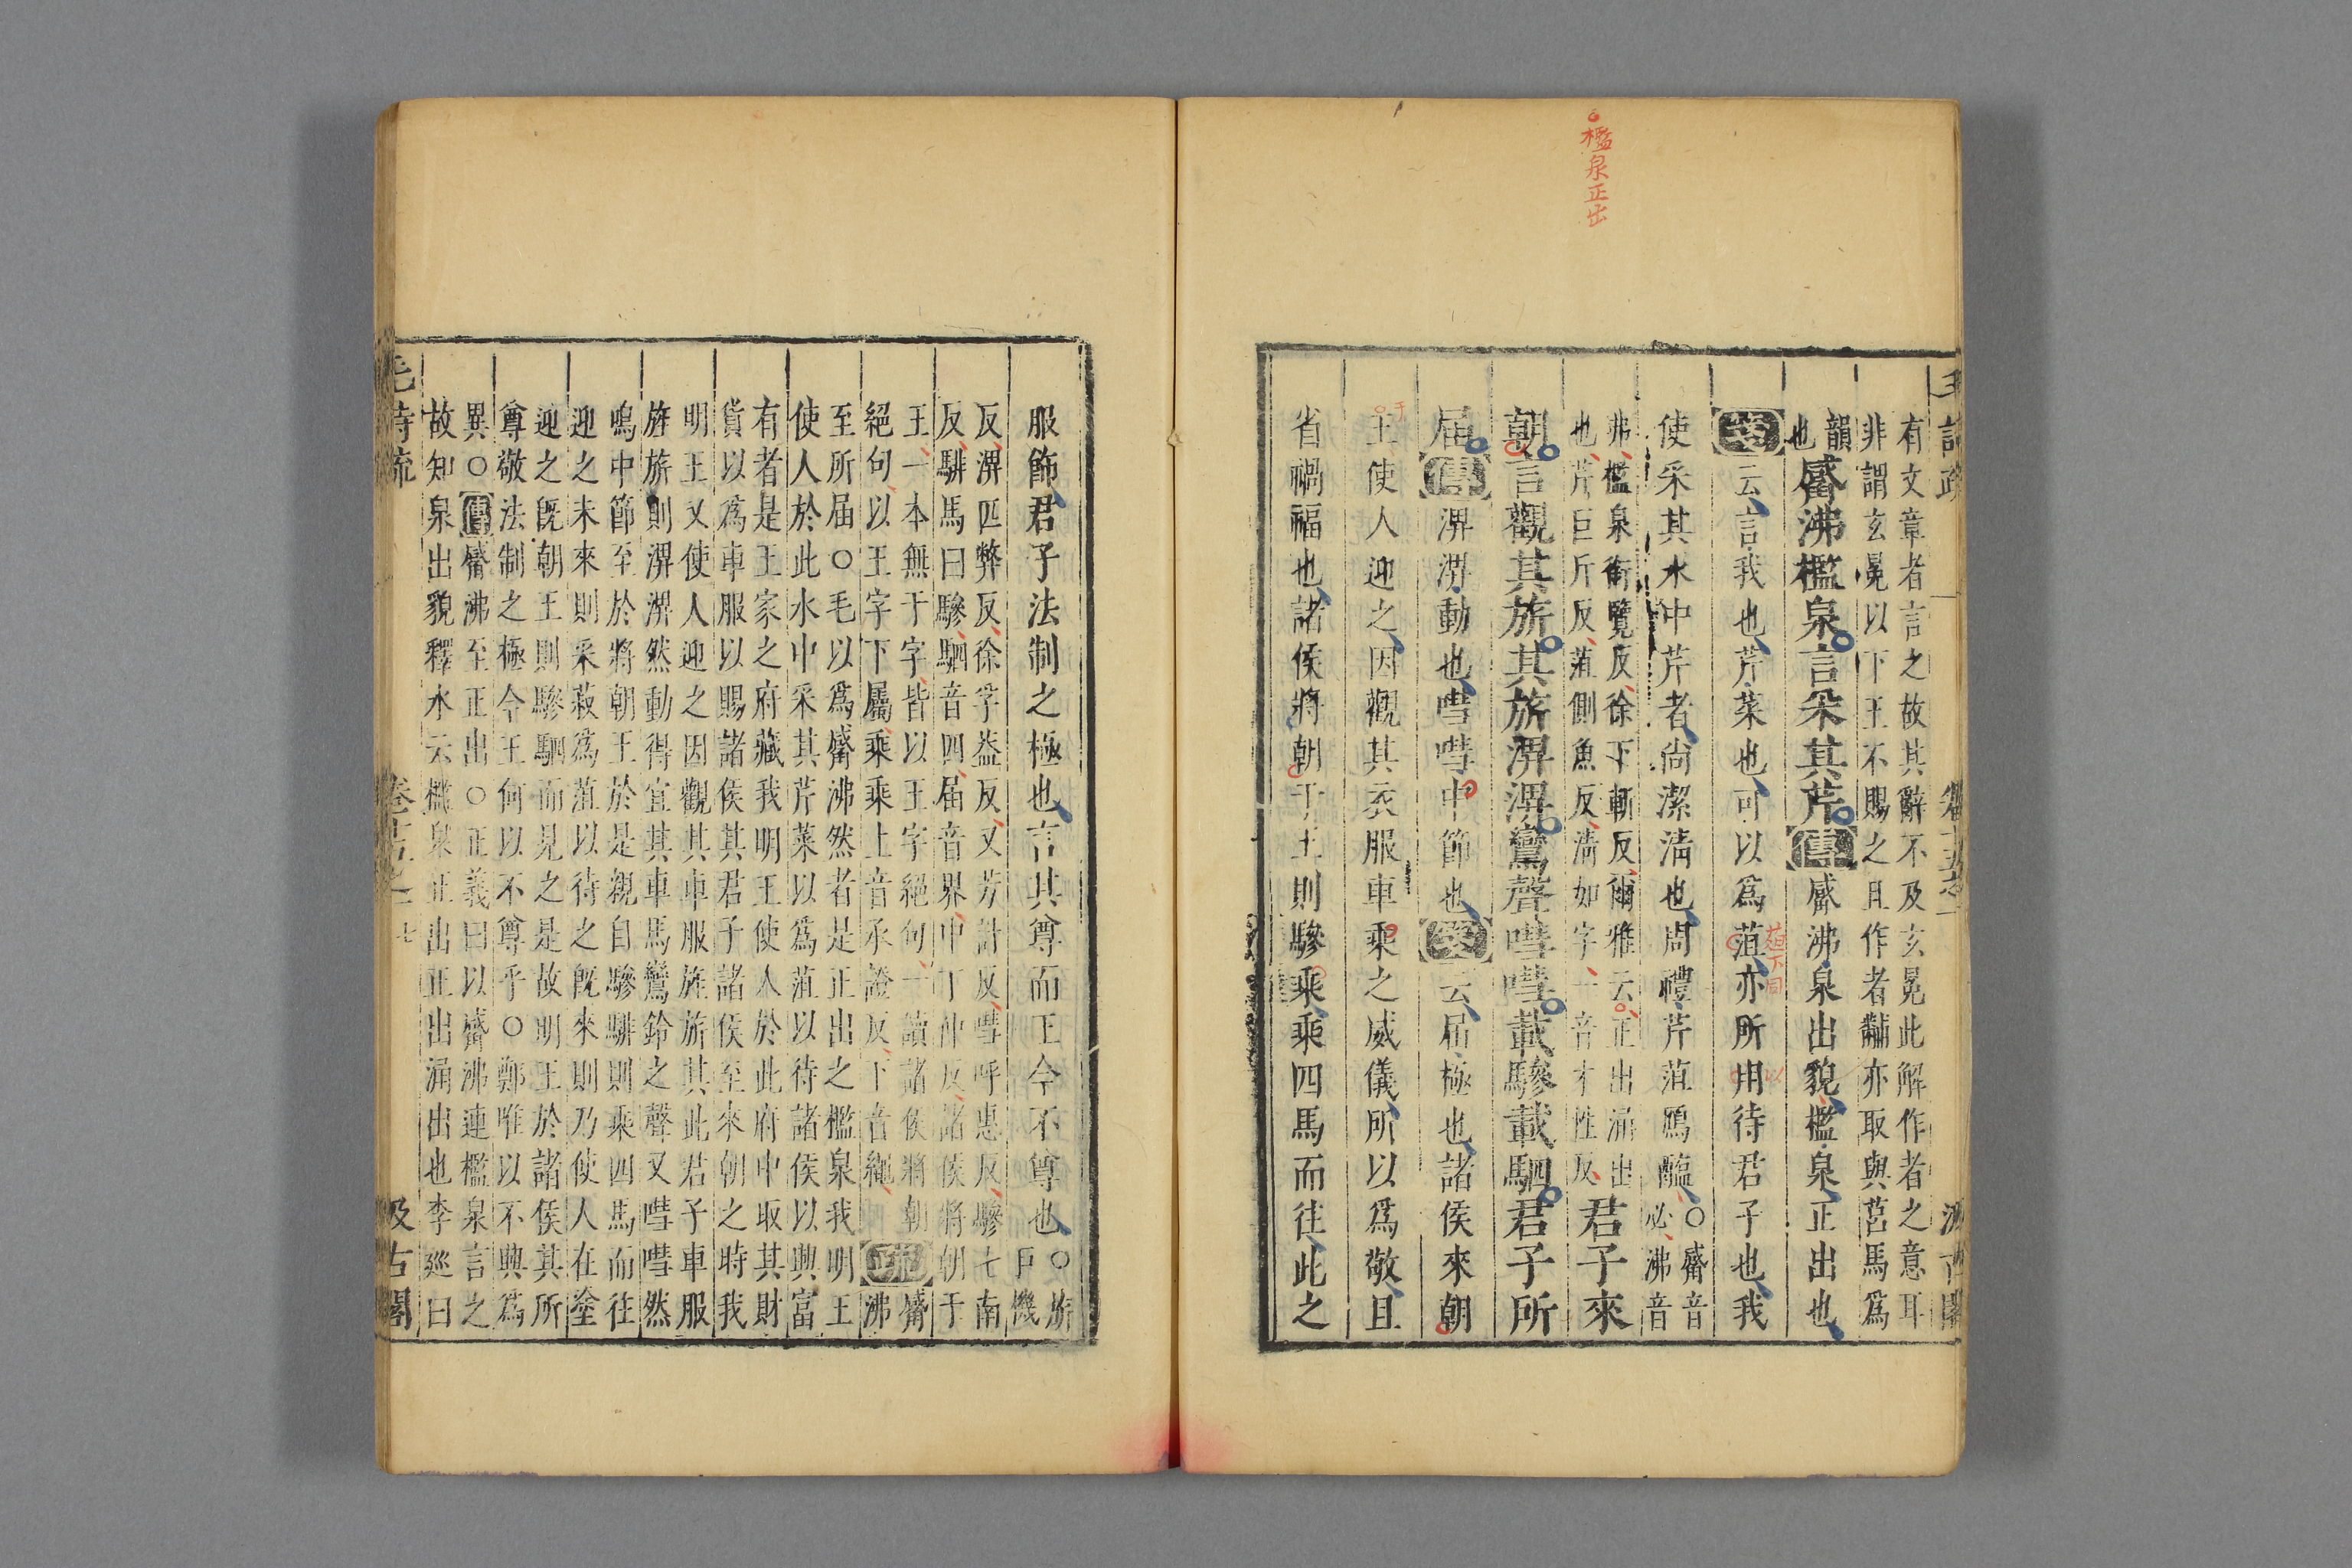 檻泉正出
有文章者言之故其辭不及玄冕此解作者之意耳
非謂玄冕以下王不賜之且作者黼亦取與莒馬爲
韻
也
觱沸檻泉言采其芹傳觱沸泉出貌檻泉正出也
箋云言我也芹菜也可以爲菹亦所用待君子也我
使采其水中芹者尚潔淸也周禮芹菹鴈醢○觱音
必沸音
弗檻泉銜覽反徐下斬反爾雅云正出涌出
也芹巨斤反菹側魚反淸如字一音才性反
君子來
朝言觀其旂其旂淠淠鸞聲嘒嘒載驂載駟君子所
屆傳淠淠動也嘒嘒中節也箋云屆極也諸侯來朝
王使人迎之因觀其衣服車乘之威儀所以爲敬且
省禍福也諸侯將朝于王則驂乘乘四馬而往此之
服飾君子法制之極也言其尊而王今不尊也○旂
巨機
反淠匹弊反徐孚蓋反又芳計反嘒呼惠反驂七南
反騑馬曰驂駟音四屆音界中丁仲反諸侯將朝于
王一本無于字皆以王字絕句一讀諸侯將朝
絕句以王字下屬乘乘上音承證反下音繩
疏觱沸
至所屆○毛以爲觱沸然者是正出之檻泉我明王
使人於此水中采其芹菜以爲菹以待諸侯以興富
有者是王家之府藏我明王使人於此府中取其財
貨以爲車服以賜諸侯其君子諸侯至來朝之時我
明王又使人迎之因觀其車服旌旂其此君子車服
旌旂則淠淠然動得宜其車馬鸞鈴之聲又嘒嘒然
鳴中節至於將朝王於是親自驂騑則乘四馬而往
迎之未來則采菽爲菹以待之旣來則乃使人在塗
迎之旣朝王則驂駟而見之是故明王於諸侯其所
尊敬法制之極今王何以不尊乎○鄭唯以不興爲
異○傳觱沸至正出○正義曰以觱沸連檻泉言之
故知泉出貌釋水云檻泉正出正出涌出也李廵曰
毛詩疏 卷十五之一 七 汲古閣